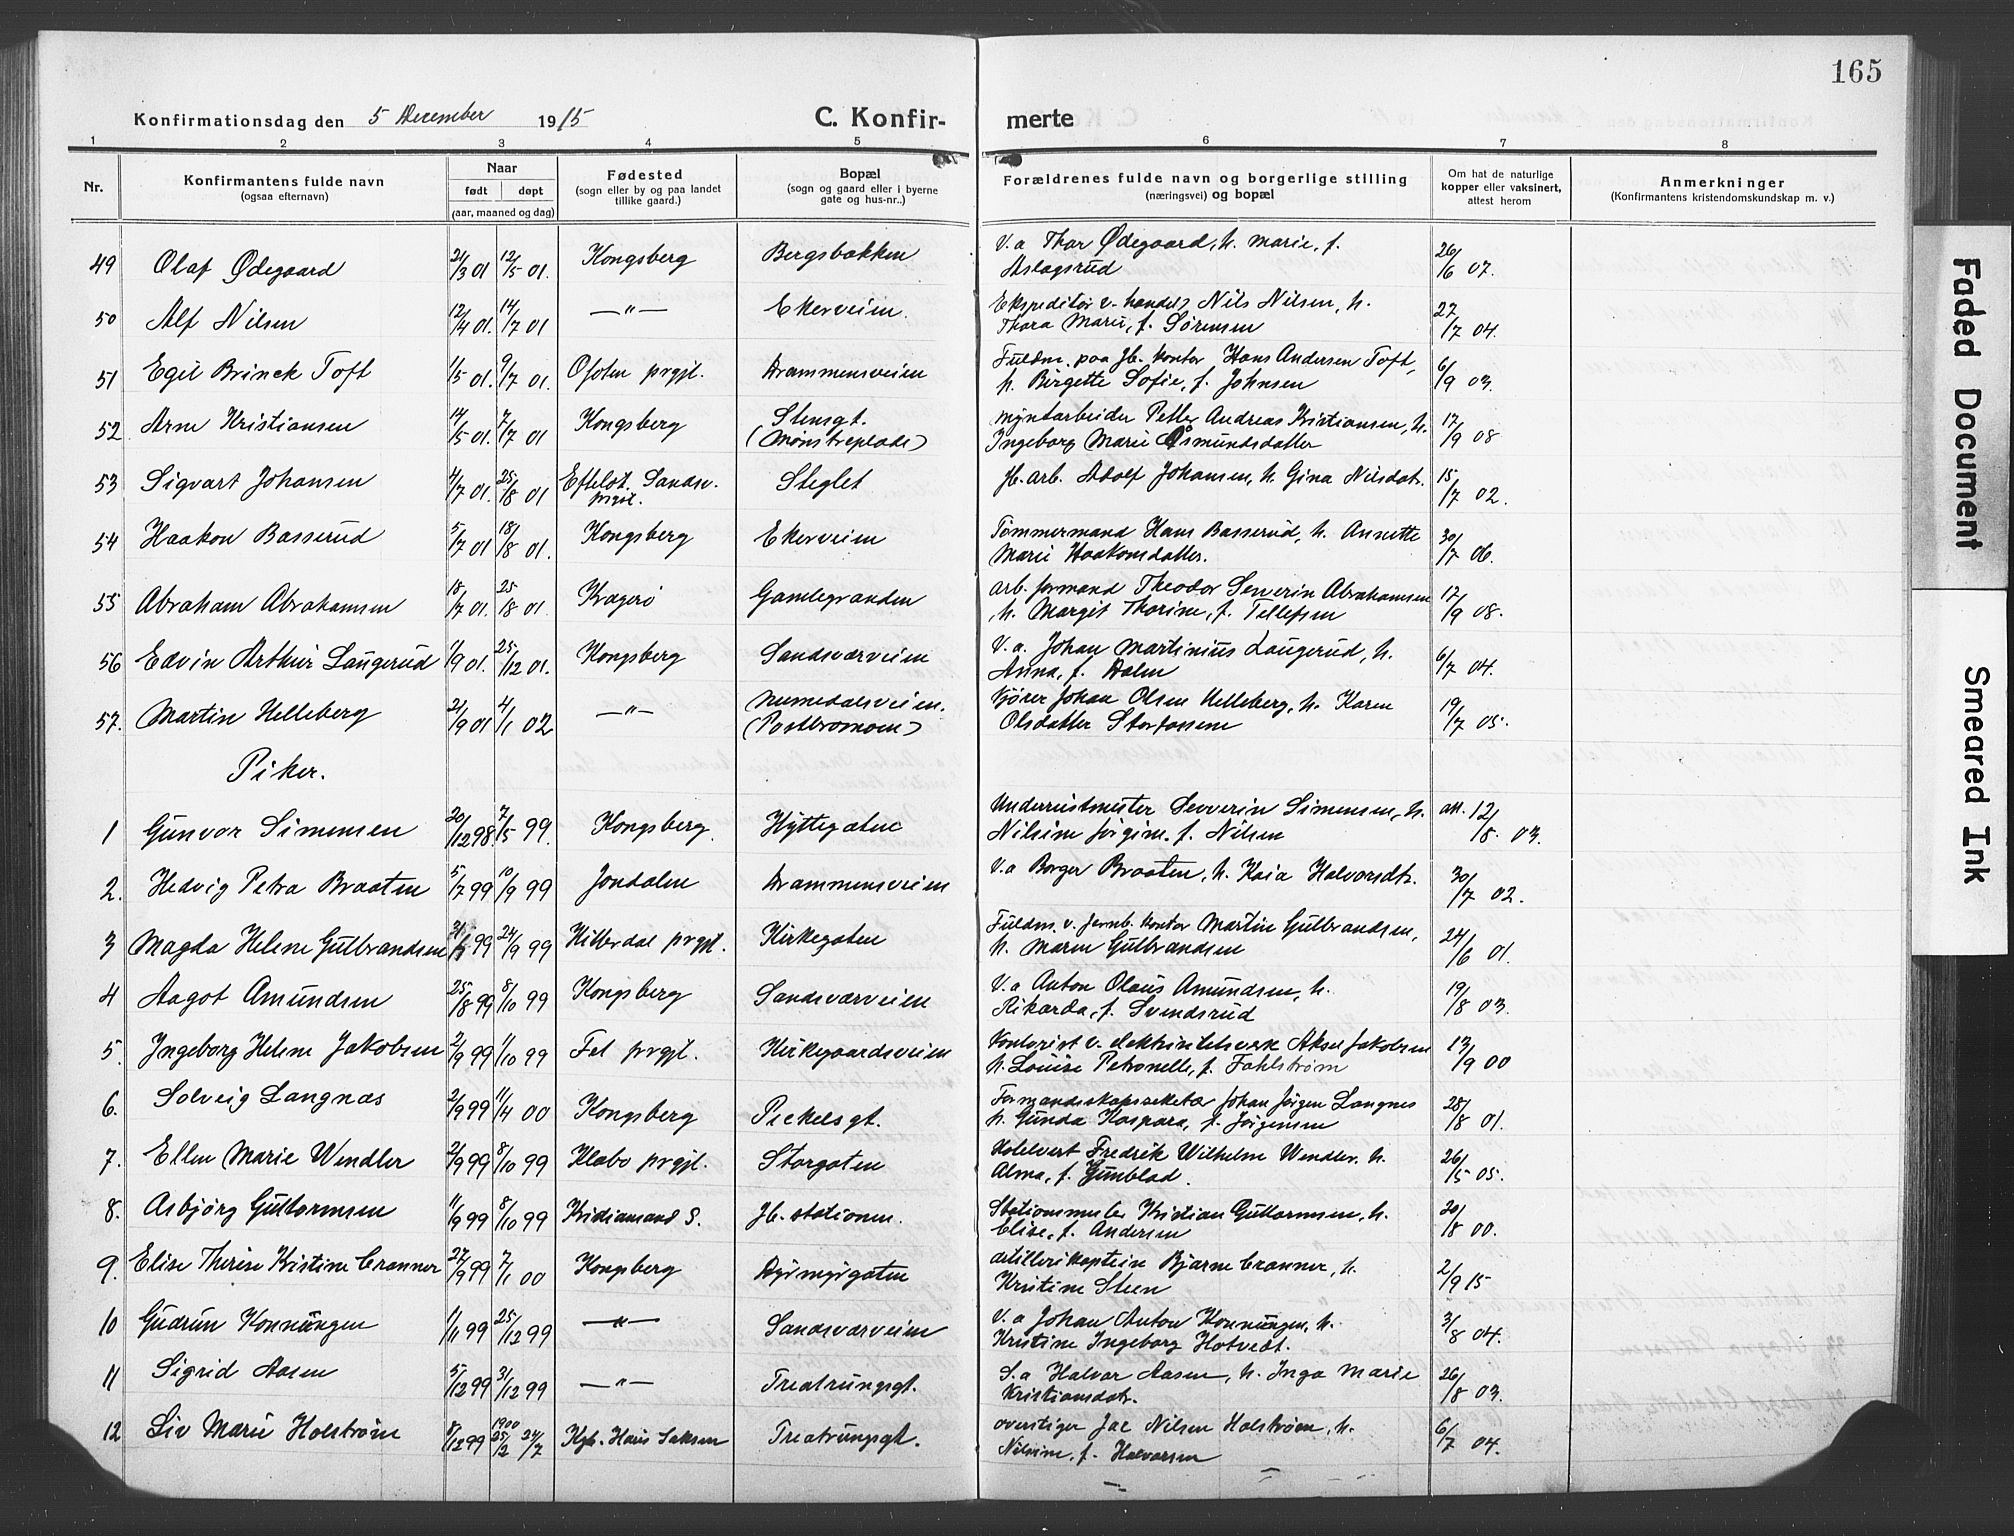 165
Konfirmationsdag den 5 December 1915 C. Konfirmerte
1 2 3 4 5 6 7 8
Nr. Konfirmantens fulde navn (ogsaa efternavn) Naar født døpt (aar, maaned og dag) Fødested (sogn eller by og paa landet tillike gaard.) Bopæl (sogn og gaard eller i byerne gate og hus-nr.) Forældrenes fulde navn og borgerlige stilling (næringsvei) og bopæl Om hat de naturlige kopper eller vaksinert, attest herom Anmerkninger (Konfirmantens kristendomskundskap m. v.)
49 Olaf Ødegaard 21/3 01 12/5 01. Kongsberg Bergsbakken V. a Thor Ødegaard, h. Marie, f. Aslagsrud 26/6 07.
50 Alf Nilsen 12/4 01. 14/7 01 —"— Ekerveien. Ekspeditør v. handel Nils Nilsen, h. Thora Marie, f. Sørensen 27/7 04.
51 Egil Brinck Toft 1/5 01. 9/7 01. Ofoten prgjl. Drammensveien Fuldm. paa Jb. kontor Hans Andersen Toft, h. Birgette Sofie, f. Johnsen 6/9 03.
52 Arne Kristiansen 14/5 01. 7/7 01 Kongsberg Stensgt. (Mønstreplads) Myntarbeider Petter Andreas Kristiansen, h. Ingeborg Marie Åsmundsdatter 17/9 08
53 Sigvart Johansen 4/7 01. 25/8 01 Efteløt, Sandsv. prgjl. Steglet Jb. arb. Adolf Johansen, h. Gina Nilsdatr. 15/7 02.
54 Haakon Basserud 5/7 01 18/8 01. Kongsberg Ekerveien Tømmermand Hans Basserud, h. Annette Marie Haakonsdatter. 30/7 06.
55 Abraham Abrahamsen 18/7 01. 25/8 01. Kragerö Gamlegranden arb. formand Theodor Severin Abrahamsen h. Margit Thorine, f. Tellefsen 17/9 08.
56 Edvin Arthur Laugerud 1/9 01. 25/12 01. Kongsberg Sandsværveien V. a. Johan Martinius Laugerud, h. Anna, f. Dalen 6/7 04.
57. Martin Helleberg 21/9 01 4/1 02 —"— Numedalsveien. (Postbromoen) Kjører Johan Olsen Helleberg, h. Karen Olsdatter Storfossene 19/7 05.
Piker.
1 Gunvor Simensen 20/12 98. 7/5 99. Kongsberg. Hyttegaten Underrustmester Severin Simensen, h. Nilsine Jørgine, f. Nilsen att. 12/8. 03.
2. Hedvig Petra Braaten 5/7 99 10/9 99 Jondalen Drammensveien V. a Borger Braaten, h. Kaia Halvorsdtr. 30/7 02.
3 Magda Helene Gulbrandsen 99 24/9 99 Hitterdal prgjl. Kirkegaten Fuldm. v. Jernb. kontor Martin Gulbrandsen, h. Maren Gulbrandsen 24/6 01.
4 Aagot Amundsen 25/8 99 8/10 99 Kongsberg Sandsværveien V. a Anton Olaus Amundsen, h. Rikarda, f. Svendsrud 19/8 03.
5. Ingeborg Helene Jakobsen 2/9 99 1/10 99 Fet prgjl. Kirkegaardsveien Kontorist v. elektrisitetsverk Aksel Jakobsen h. Louise Petronelle, f. Fahlstrøm 13/9 00
6. Solveig Langnæs 2/9 99 11/4 00 Kongsberg Pickelsgt. Formandsskapssekretær Johan Jørgen Langnes h. Gunda Kaspara, f. Jørgensen 28/8 01.
7. Ellen Marie Wendler 2/9 99 8/10 99 Klæbo prgjl. Storgaten Fredrik Wilhelm Wendler. h. Alma, f. Gunblad. 26/5 05.
8. Asbjørg Guttormsen 11/9 99 8/10 99 Kristiansand S. Jb. stationen. Stationsmester Kristian Guttormsen, h. Elise, f. Andersen 20/8 00.
9. Elise Therese Kristine Cranner 27/9 99 7/1 00 Kongsberg Dyrmyrgaten artillerikaptein Bjarne Cranner, h. Kristine Steen 2/9 15
10 Gudrun Konnungen 1/11 99 25/12 99 —"— Sandsværveien V. a Johan Anton Konnungen, h. Kristine Ingeborg Hotvedt. 3/8 04.
11 Sigrid Aasen 5/12 99 31/12 99 —"— Treatrungsgt. S. a Halvor Aasen, h. Inga Marie Kristiansdatr. 26/8 03.
12 Liv Marie Holstrøm 8/12 99 1900 25/2 24/7 Kgb. Haus Saksen Treatrungsgt. overstiger Jac Nilsen Holstrøm, h. Nilsine, f. Halvorsen 6/7 04.
Faded Document
Smeared Ink